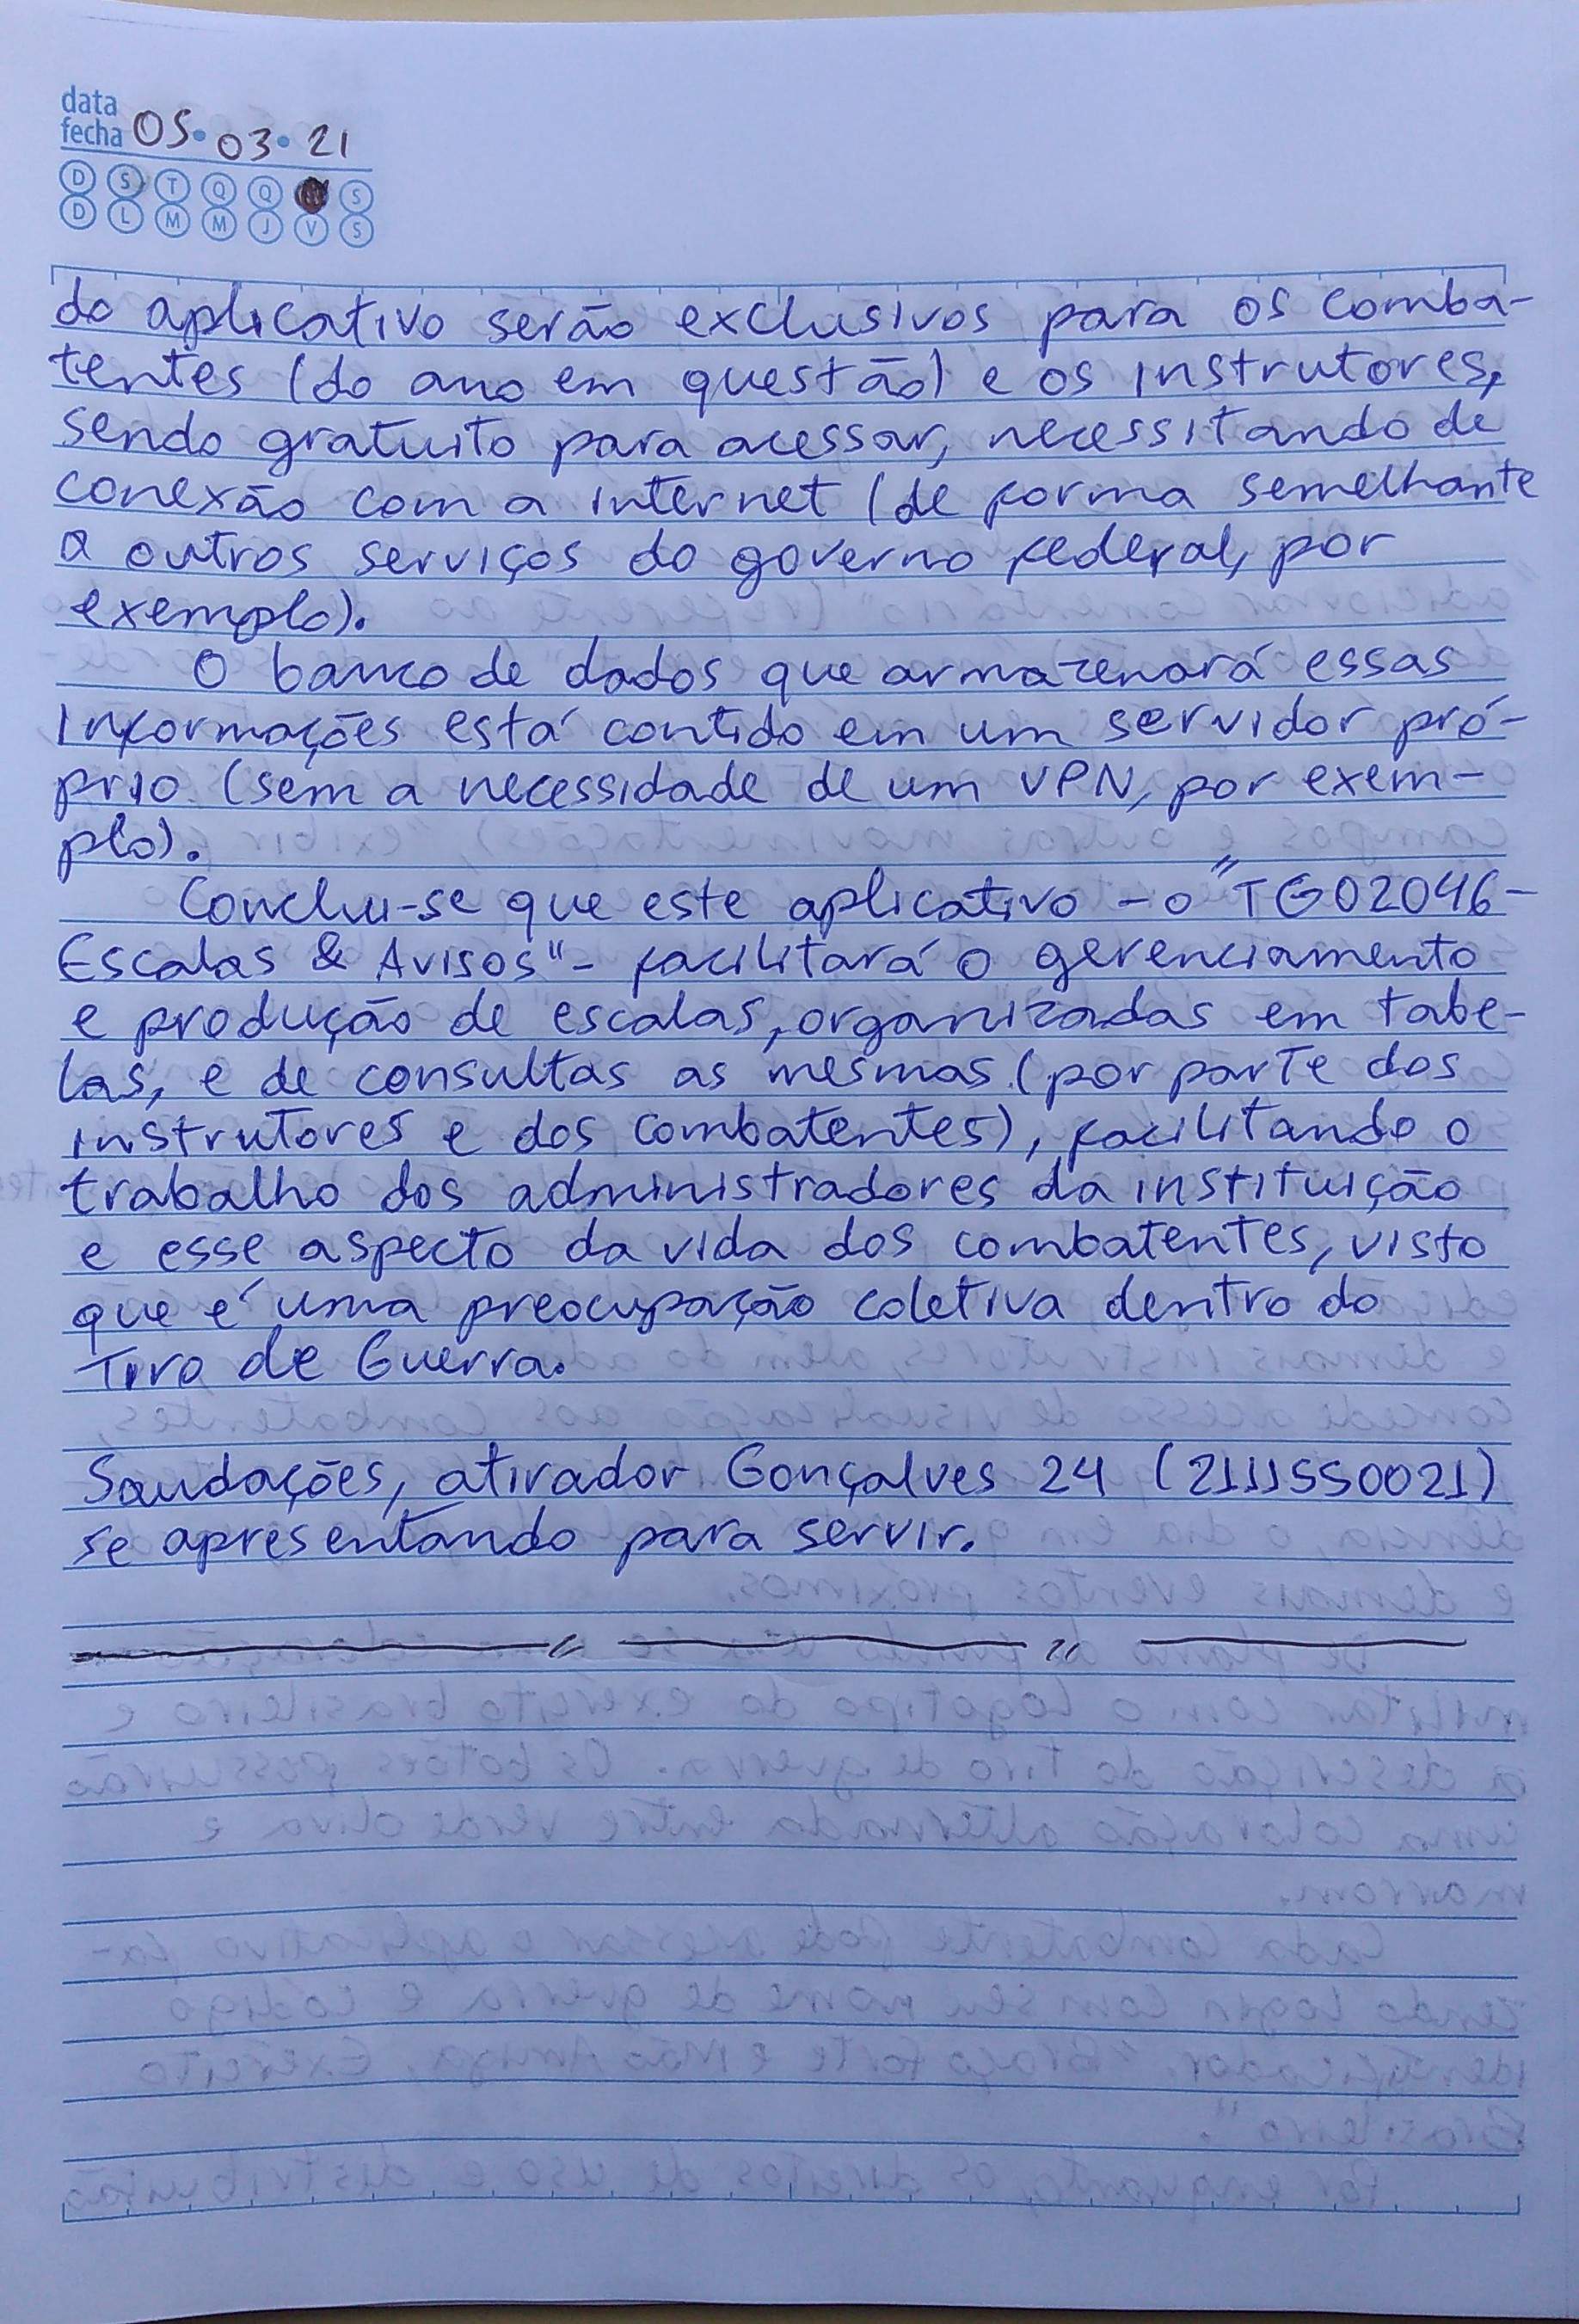 data
fecha 05 · 03 · 21
D S T Q Q S
D L M M J V S
do aplicativo serão exclusivos para os comba-
tentes (do ano em questão) e os instrutores,
sendo gratuito para acessar, necessitando de
conexão com a internet (de forma semelhante
a outros serviços do governo federal, por
exemplo).
O banco de dados que armazenará essas
informações está contido em um servidor pró-
prio (sem a necessidade de um VPN, por exem-
plo).
Conclui-se que este aplicativo - o "TG02046-
Escalas & Avisos" - facilitará o gerenciamento
e produção de escalas, organizadas em tabe-
las, e de consultas as mesmas (por parte dos
instrutores e dos combatentes), facilitando o
trabalho dos administradores da instituição
e esse aspecto da vida dos combatentes, visto
que é uma preocupação coletiva dentro do
Tiro de Guerra.
Saudações, atirador Gonçalves 24 (2111550021)
se apresentando para servir.